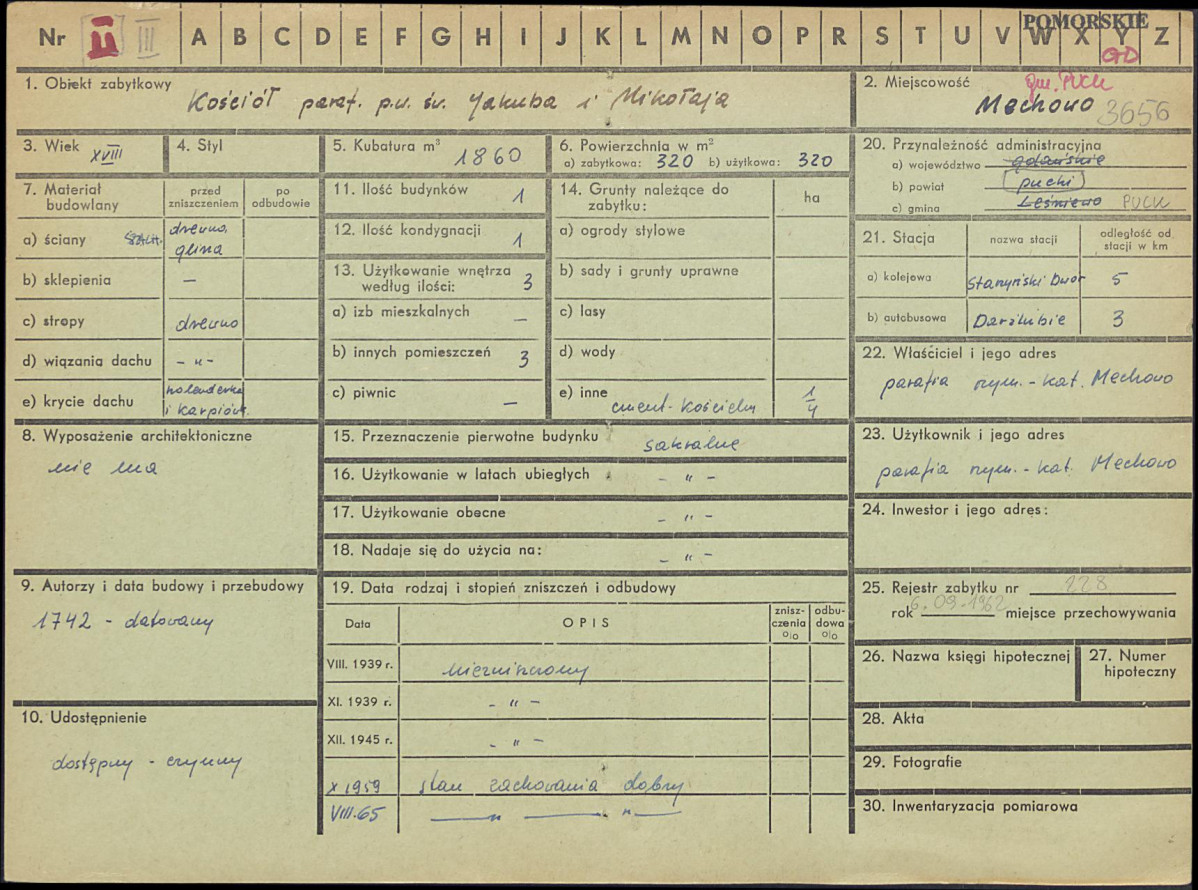 Nr II III A B C D E F G H I J K L M N O P R S T U V W X Y Z
POMORSKIE
GD
1. Obiekt zabytkowy
Kościół paraf. p.w. św. Jakuba i Mikołaja
2. Miejscowość
gm. PUCK
Mechowo 3656
3. Wiek XVIII
4. Styl
5. Kubatura m³ 1860
6. Powierzchnia w m²
a) zabytkowa: 320 b) użytkowa: 320
7. Materiał budowlany
przed zniszczeniem
po odbudowie
a) ściany drewno, glina
b) sklepienia —
c) stropy drewno
d) wiązania dachu - „ -
e) krycie dachu holenderka i karpiówk.
8. Wyposażenie architektoniczne
nie ma
9. Autorzy i data budowy i przebudowy
1742 - datowany
10. Udostępnienie
dostępny - czynny
11. Ilość budynków 1
12. Ilość kondygnacji 1
13. Użytkowanie wnętrza według ilości: 3
a) izb mieszkalnych —
b) innych pomieszczeń 3
c) piwnic —
14. Grunty należące do zabytku:
ha
a) ogrody stylowe
b) sady i grunty uprawne
c) lasy
d) wody
e) inne cment. kościelny 1/4
15. Przeznaczenie pierwotne budynku sakralne
16. Użytkowanie w latach ubiegłych - „ -
17. Użytkowanie obecne - „ -
18. Nadaje się do użycia na: - „ -
19. Data rodzaj i stopień zniszczeń i odbudowy
Data
OPIS
znisz-
czenia
o|o
odbu-
dowa
o|o
VIII. 1939 r. niezniszczony
XI. 1939 r. - „ -
XII. 1945 r. - „ -
X 1959 stan zachowania dobry
VIII.65 — „ — „ —
20. Przynależność administracyjna
a) województwo gdańskie
b) powiat pucki
c) gmina Leśniewo PUCK
21. Stacja
nazwa stacji
odległość od stacji w km
a) kolejowa Starzyński Dwór 5
b) autobusowa Darżlubie 3
22. Właściciel i jego adres
parafia rzym.-kat. Mechowo
23. Użytkownik i jego adres
parafia rzym.-kat. Mechowo
24. Inwestor i jego adres:
25. Rejestr zabytku nr 228
rok 6.09.1962 miejsce przechowywania
26. Nazwa księgi hipotecznej
27. Numer hipoteczny
28. Akta
29. Fotografie
30. Inwentaryzacja pomiarowa